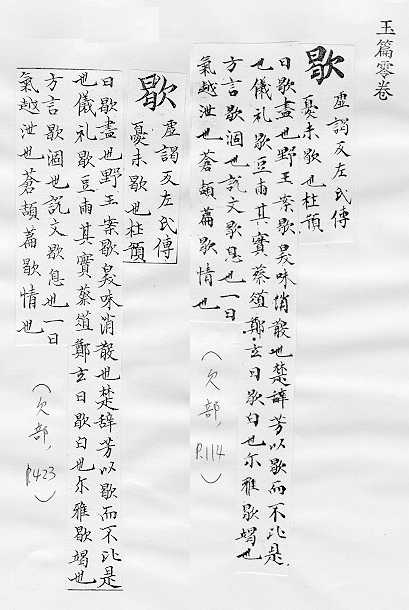 玉篇零卷
歇
虛謁反左氏傳
憂未歇也杜預
曰歇盡也野王案歇臭味消散也楚辭芳以歇而不比是
也儀礼歇豆兩其實葵菹鄭玄曰歇白也尒雅歇竭也
方言歇涸也說文歇息也一曰
氣越泄也蒼頡篇歇情也
（欠部，P.114）
歇
虛謁反左氏傳
憂未歇也杜預
曰歇盡也野王案歇臭味消散也楚辭芳以歇而不比是
也儀礼歇豆兩其實葵菹鄭玄曰歇白也尒雅歇竭也
方言歇涸也說文歇息也一曰
氣越泄也蒼頡篇歇情也
（欠部，P.423）